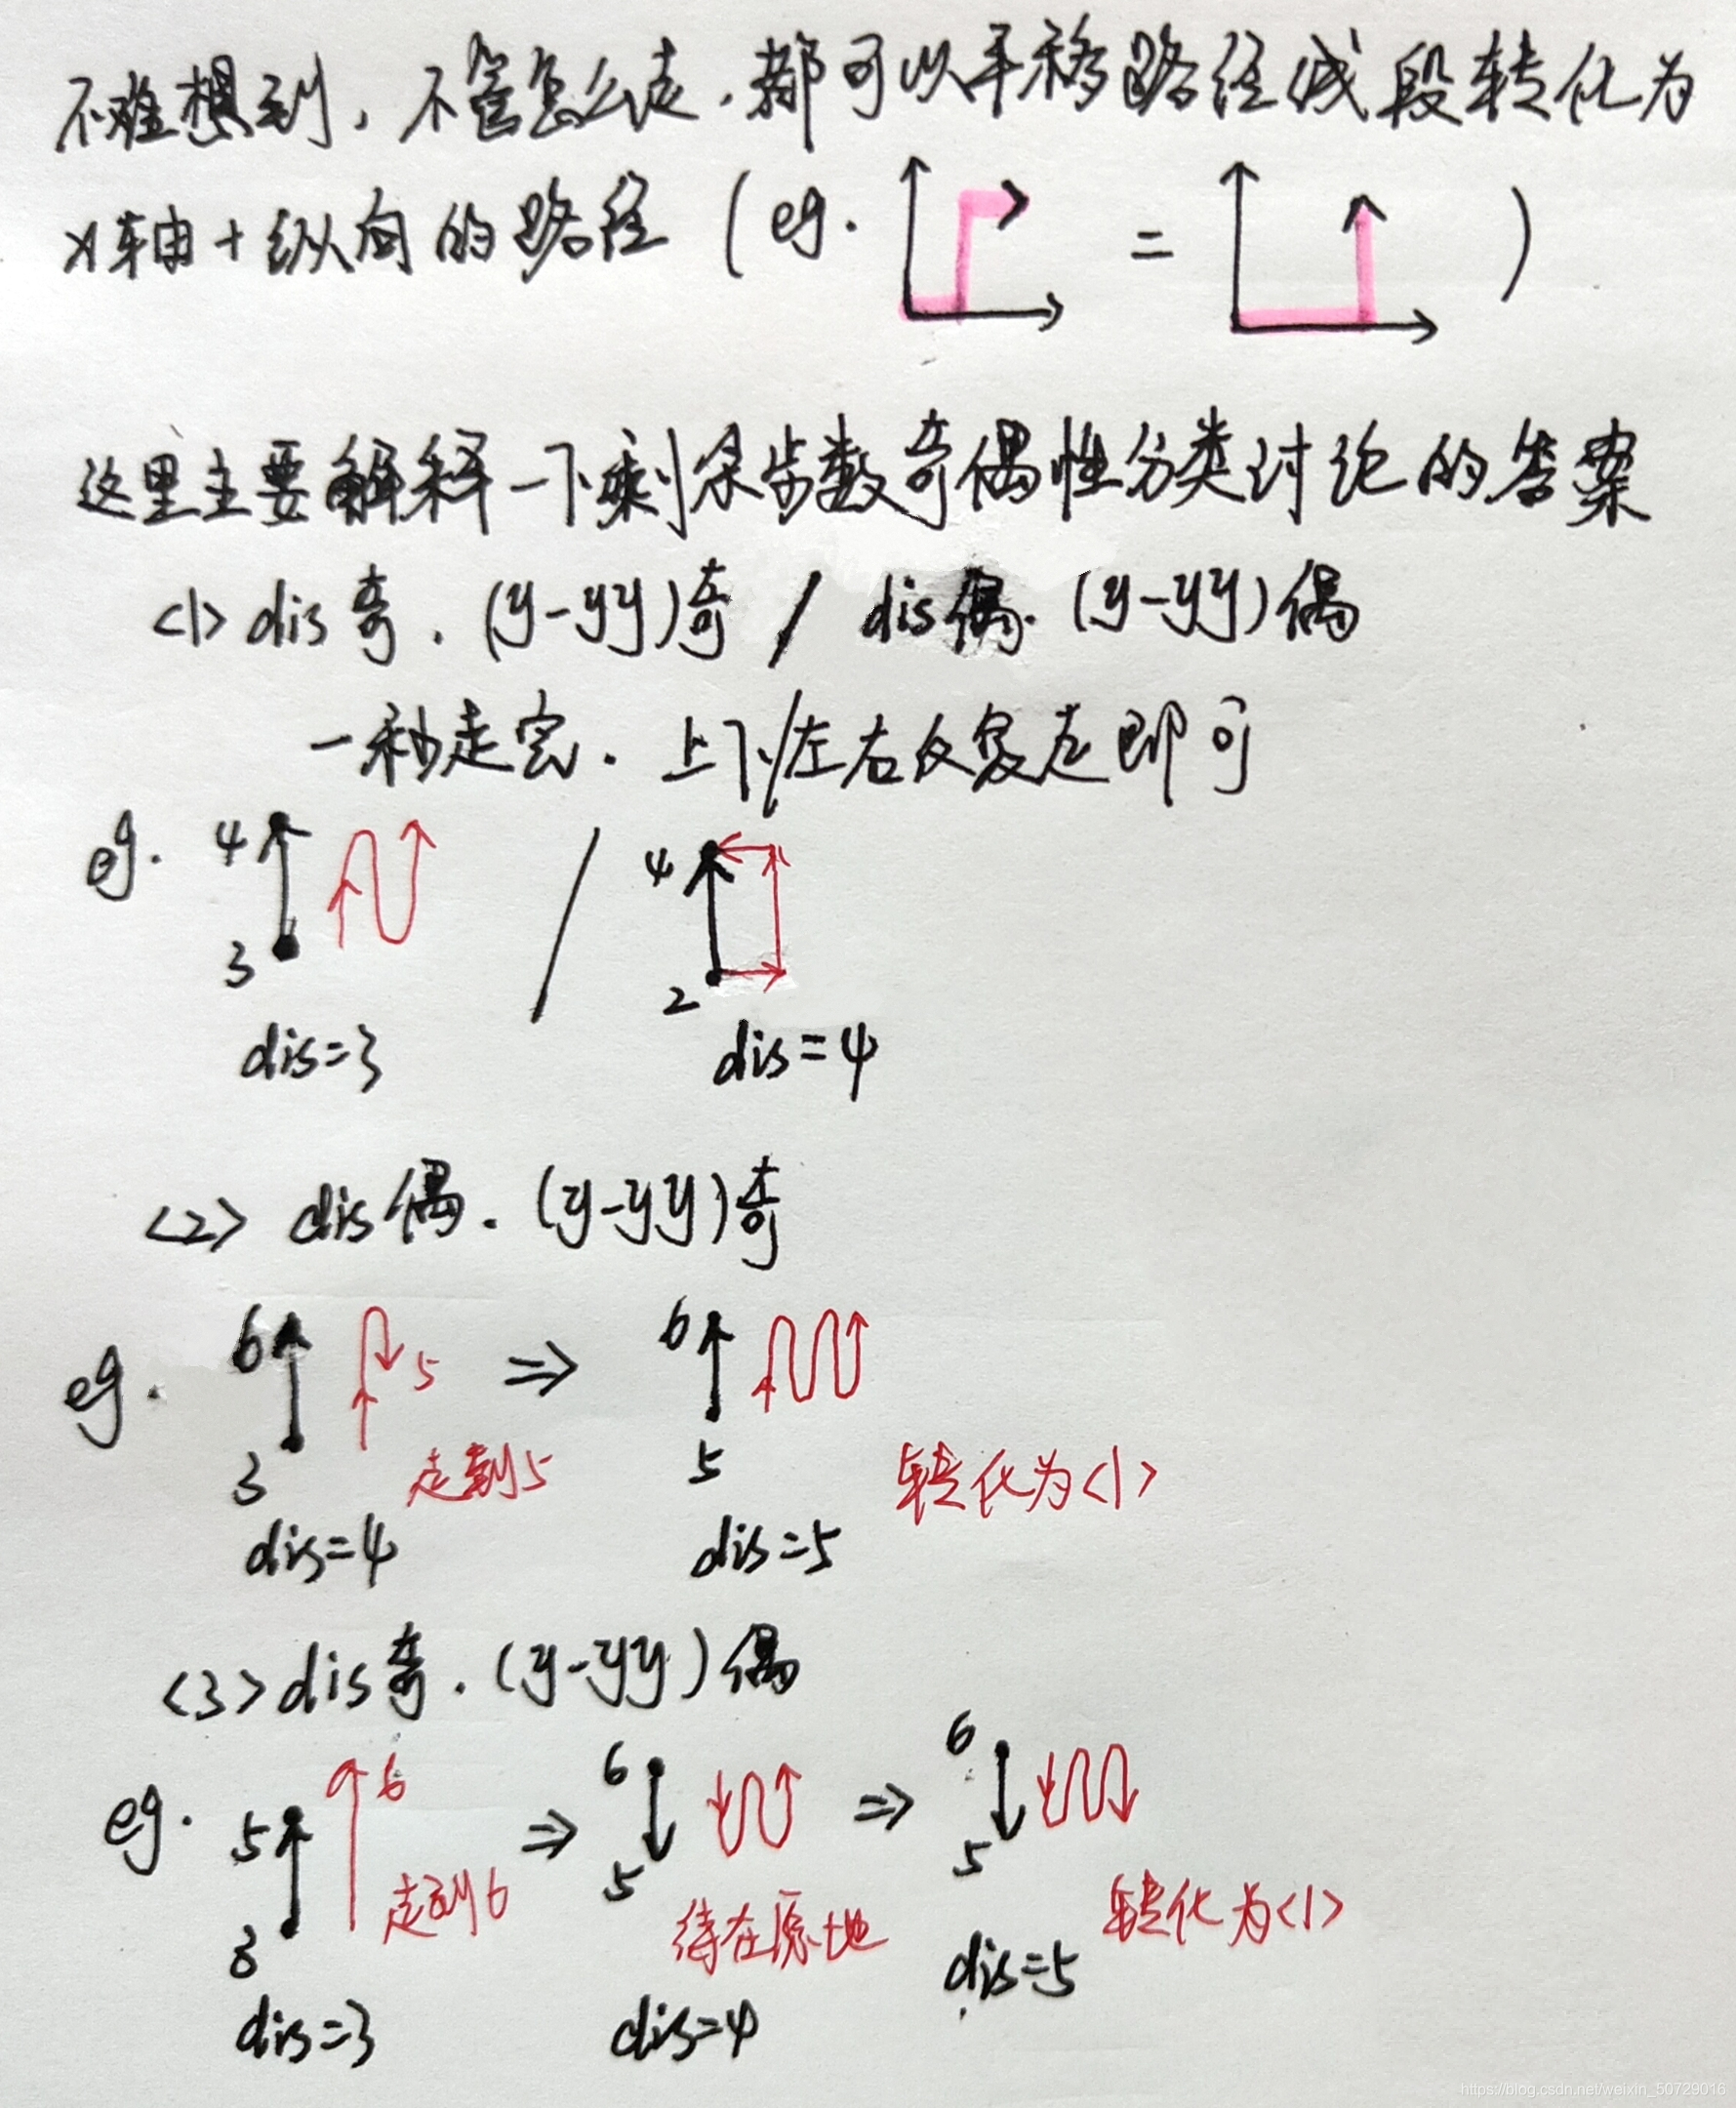 不难想到，不管怎么走，都可以平移路径线段转化为
x轴+纵向的路径（eg. = ）
这里主要解释一下剩余步数奇偶性分类讨论的答案
<1> dis奇.(y-yy)奇 / dis偶.(y-yy)偶
一秒走完.上下/左右反复走即可
eg. 4 3 / 4 2
dis=3 dis=4
<2> dis偶.(y-yy)奇
eg. 6 3 5 ⇒ 6 5
走到5 转化为<1>
dis=4 dis=5
<3> dis奇.(y-yy)偶
eg. 5 3 6 ⇒ 6 5 ⇒ 6 5
走到6 待在原地 转化为<1>
dis=3 dis=4 dis=5
https://blog.csdn.net/weixin_50729016